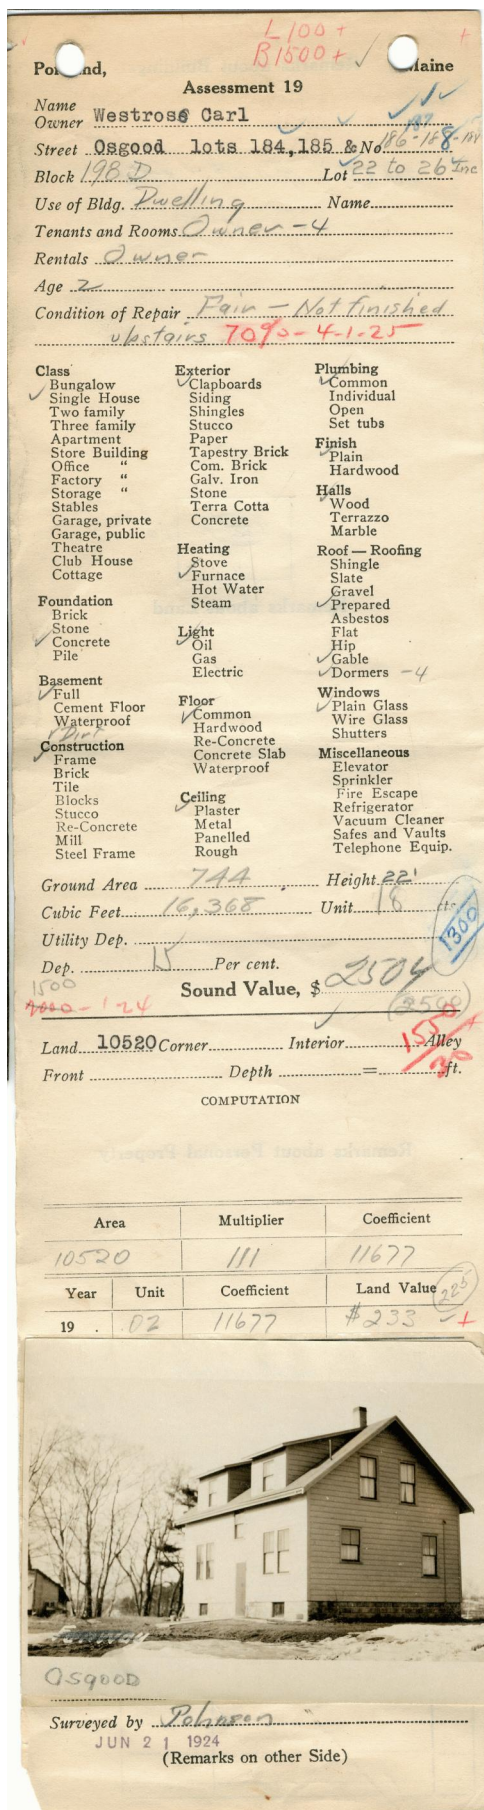 L 100 +
B 1500 + ✓
Portland, Maine
Assessment 19
Name
Owner Westrose Carl
Street Osgood lots 184,185 & No 186-187-188-189
Block 198 D Lot 22 to 26 Inc
Use of Bldg. Dwelling Name
Tenants and Rooms Owner - 4
Rentals Owner
Age 2
Condition of Repair Fair - Not finished
upstairs 70% - 4-1-25
Class
✓ Bungalow
Single House
Two family
Three family
Apartment
Store Building
Office "
Factory "
Storage "
Stables
Garage, private
Garage, public
Theatre
Club House
Cottage
Foundation
Brick
Stone
✓ Concrete
Pile
Basement
✓ Full
Cement Floor
Waterproof
✓ Dirt
Construction
✓ Frame
Brick
Tile
Blocks
Stucco
Re-Concrete
Mill
Steel Frame
Exterior
✓ Clapboards
Siding
Shingles
Stucco
Paper
Tapestry Brick
Com. Brick
Galv. Iron
Stone
Terra Cotta
Concrete
Heating
Stove
✓ Furnace
Hot Water
Steam
Light
✓ Oil
Gas
Electric
Floor
✓ Common
Hardwood
Re-Concrete
Concrete Slab
Waterproof
Ceiling
✓ Plaster
Metal
Panelled
Rough
Plumbing
✓ Common
Individual
Open
Set tubs
Finish
✓ Plain
Hardwood
Halls
✓ Wood
Terrazzo
Marble
Roof — Roofing
Shingle
Slate
Gravel
✓ Prepared
Asbestos
Flat
Hip
✓ Gable
✓ Dormers - 4
Windows
✓ Plain Glass
Wire Glass
Shutters
Miscellaneous
Elevator
Sprinkler
Fire Escape
Refrigerator
Vacuum Cleaner
Safes and Vaults
Telephone Equip.
Ground Area 744 Height 22'
Cubic Feet 16,368 Unit 18 cts.
1300
Utility Dep.
Dep. 15 Per cent.
1500 Sound Value, $ 2504
(2500)
Land 10520 Corner Interior ✓ Alley
Front Depth = ft.
COMPUTATION
Area Multiplier Coefficient
10520 111 11677
Year Unit Coefficient Land Value 225
19 . .02 11677 $233 ✓ +
Osgood
Surveyed by Johnson
JUN 21 1924
(Remarks on other Side)